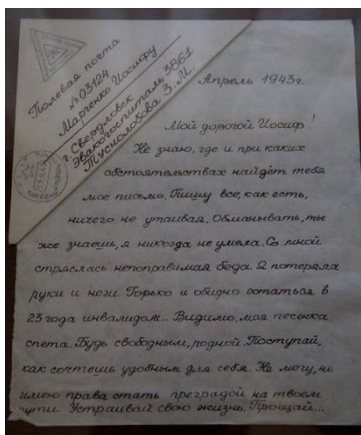 Полевая почта
№ 03124
Марченко Иосифу
г. Свердловск
Эвакогоспиталь 3861
Туснолобова З. М.
Апрель 1943г.
Мой дорогой Иосиф!
Не знаю, где и при каких
обстоятельствах найдёт тебя
мое письмо. Пишу все, как есть,
ничего не утаивая. Обманывать, ты
же знаешь, я никогда не умела. Со мной
стряслась непоправимая беда. Я потеряла
руки и ноги. Горько и обидно остаться в
23 года инвалидом... Видимо, моя песенка
спета. Будь свободным, родной. Поступай,
как сочтешь удобным для себя. Не могу, не
имею права стать преградой на твоем
пути. Устраивай свою жизнь. Прощай...